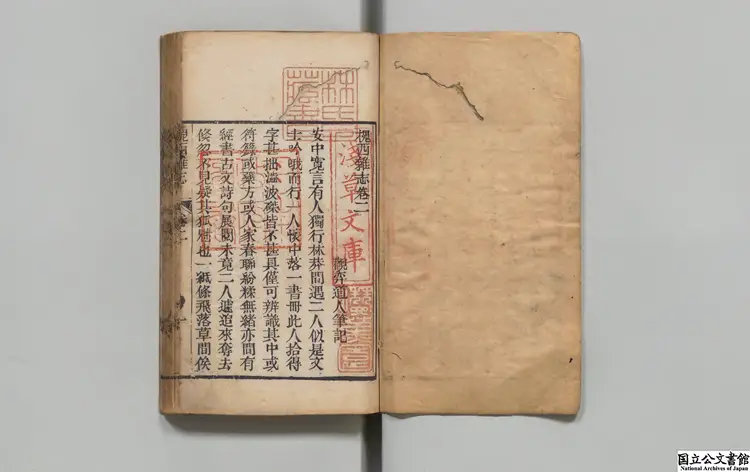 槐西雜志卷二
觀弈道人筆記
安中寬言有人獨行林莽間遇二人似是文
士吟哦而行一人懷中落一書冊此人拾得
字甚拙澁波磔皆不甚具僅可辨識其中或
符籙或藥方或人家春聯紛糅無緒亦間有
經書古文詩句展閱未竟二人遽追來奪去
倏忽不見疑其狐魅也一紙條飛落草間俟
淺草文庫
林氏藏書
国立公文書館
National Archives of Japan